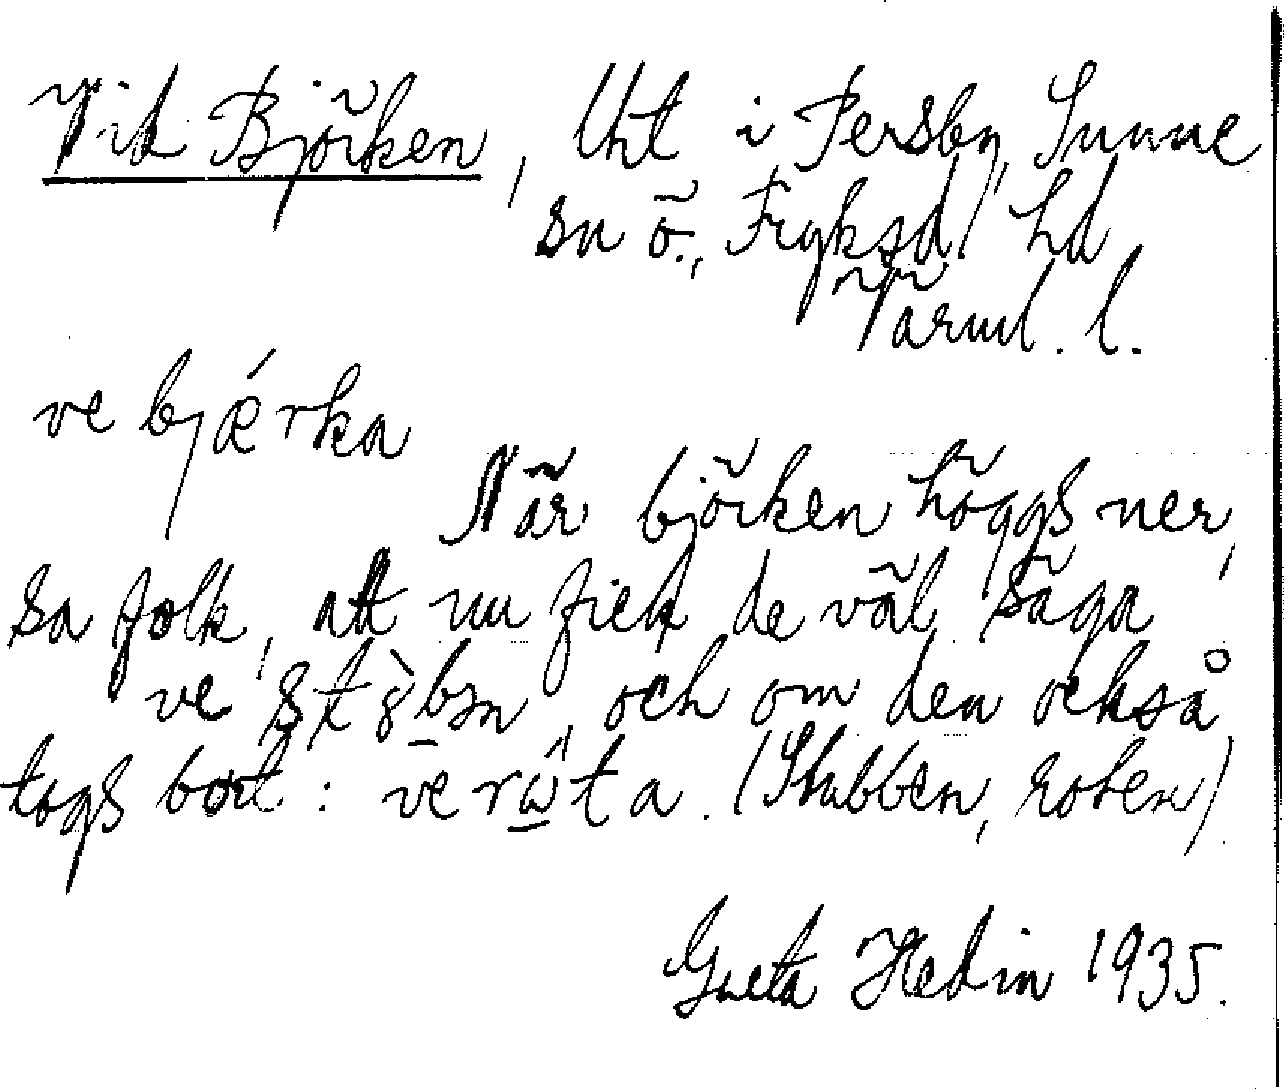 Vid Björken, Uht i Persby, Sunne
sn ö., Fryksd. hd
Värml. l.
ve bjǽrka
När björken höggs ner,
sa folk, att nu fick de väl säga
ve och om den också
togs bort: ve ta. (Stubben, roten)
Greta Hedin 1935.